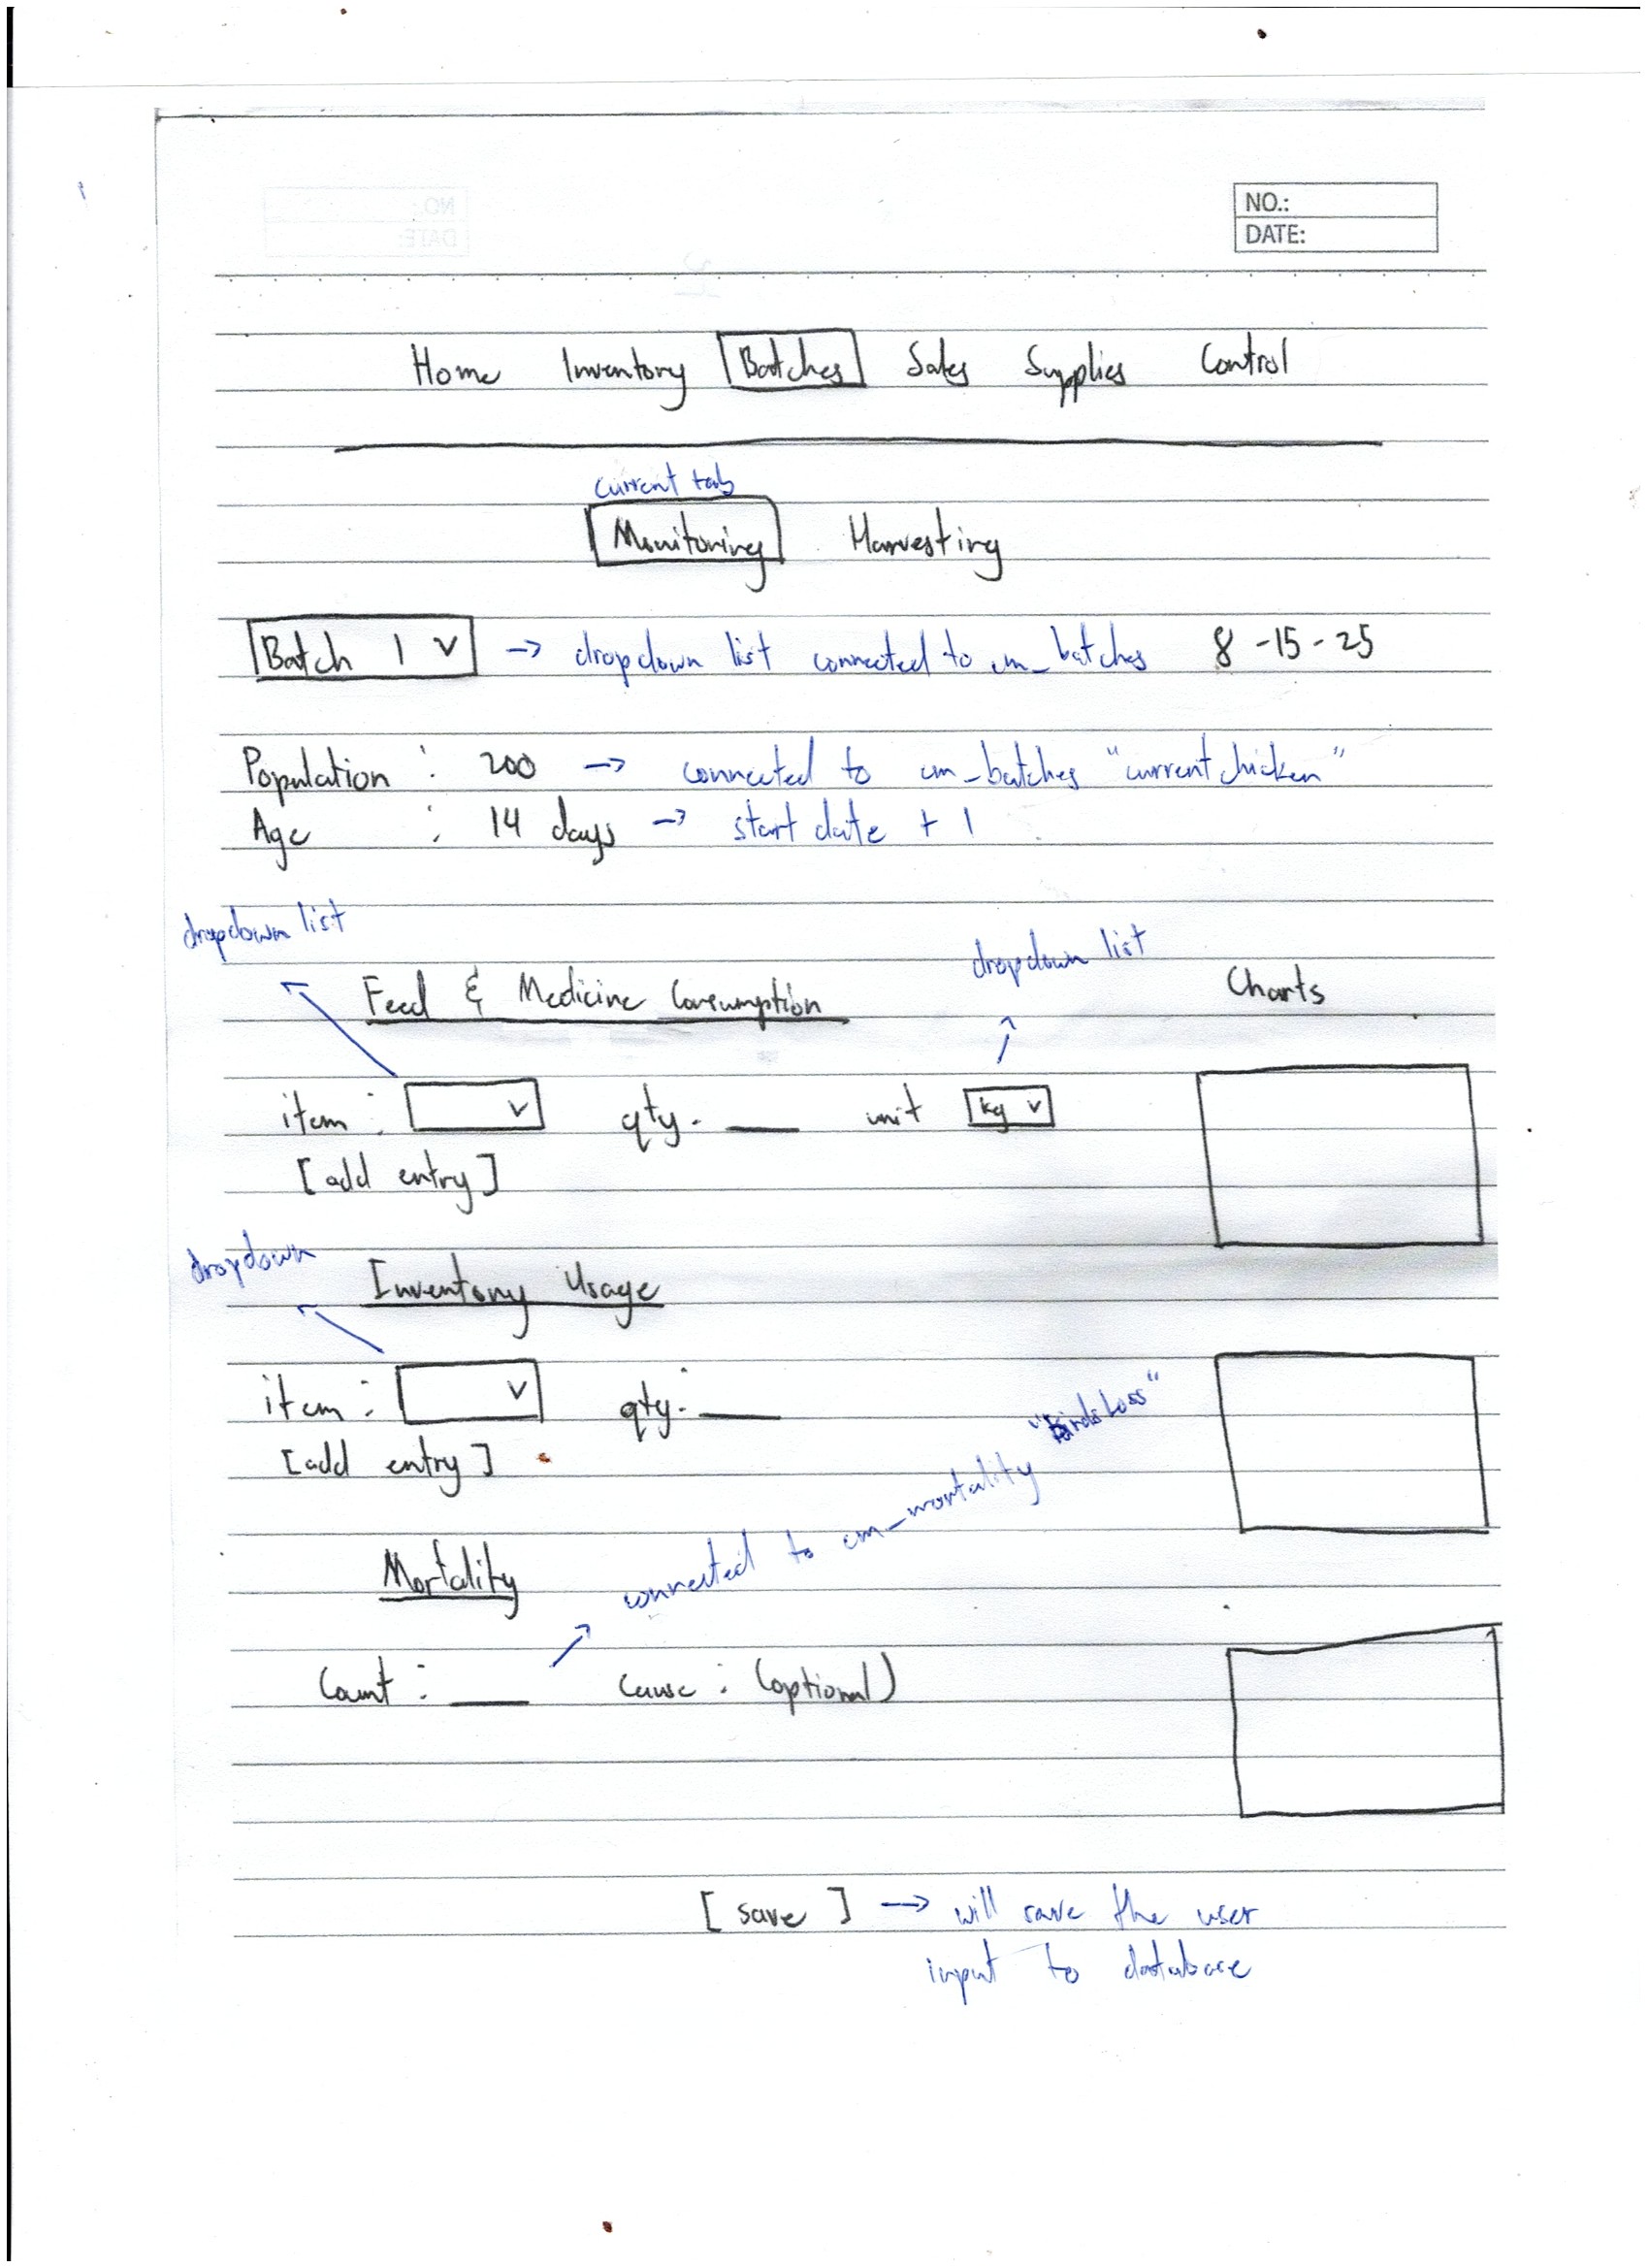 NO.:
DATE:
Home Inventory Batches Sales Supplies Control
current tab
Monitoring Harvesting
Batch 1 v → dropdown list connected to cm_batches 8-15-25
Population : 200 → connected to cm_batches "current chicken"
Age : 14 days → start date + 1
dropdown list
dropdown list
Feed & Medicine Consumption Charts
item : v qty. ___ unit kg v
[add entry]
dropdown
Inventory Usage
item : v qty: ___
[add entry]
connected to cm_mortality "Birds Loss"
Mortality
Count : ___ cause : (optional)
[save] → will save the user
input to database